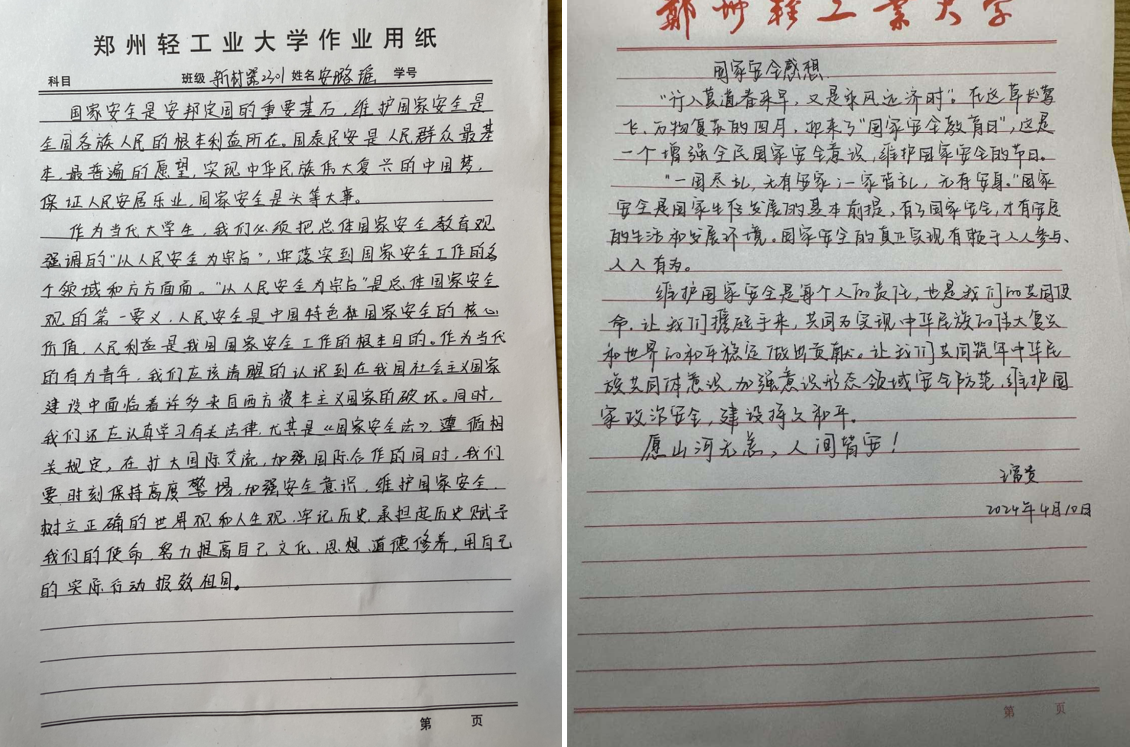 郑州轻工业大学作业用纸
科目 班级 新材第2301 姓名 安晓瑶 学号
国家安全是安邦定国的重要基石，维护国家安全是
全国各族人民的根本利益所在。国泰民安是人民群众最基
本、最普遍的愿望，实现中华民族伟大复兴的中国梦，
保证人民安居乐业，国家安全是头等大事。
作为当代大学生，我们必须把总体国家安全教育观
强调的"以人民安全为宗旨"，牢落实到国家安全工作的各
个领域和方方面面。"以人民安全为宗旨"是总体国家安全
观的第一要义，人民安全是中国特色国家安全的核心
价值，人民利益是我国国家安全工作的根本目的。作为当代
的有为青年，我们应该清醒的认识到在我国社会主义国家
建设中面临着许多来自西方资本主义国家的破坏。同时，
我们还应认真学习有关法律，尤其是《国家安全法》遵循相
关规定，在扩大国际交流，加强国际合作的同时，我们
要时刻保持高度警惕，加强安全意识，维护国家安全，
树立正确的世界观和人生观，牢记历史，承担起历史赋予
我们的使命，努力提高自己文化、思想、道德修养，用自己
的实际行动报效祖国。
第 页
郑州轻工业大学
国家安全感想
"行入莫道春来早，又是乘风远济时"。在这草长莺
飞，万物复苏的四月，迎来了"国家安全教育日"，这是
一个增强全民国家安全意识，维护国家安全的节日。
"一国尽乱，无有安家；一家皆乱，无有安身。"国家
安全是国家生存发展的基本前提，有了国家安全，才有安定
的生活和发展环境。国家安全的真正实现有赖于人人参与、
人人有为。
维护国家安全是每个人的责任，也是我们的共同使
命，让我们携起手来，共同为实现中华民族的伟大复兴
和世界的和平稳定做出贡献。让我们共同筑牢中华民
族共同体意识，加强意识形态领域安全防范，维护国
家政治安全，建设持久和平。
愿山河无恙，人间皆安！
2024年4月10日
第 页